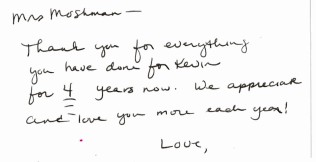 Mrs Moshman —
Thank you for everything
you have done for Kevin
for 4 years now. We appreciate
and love you more each year!
Love,